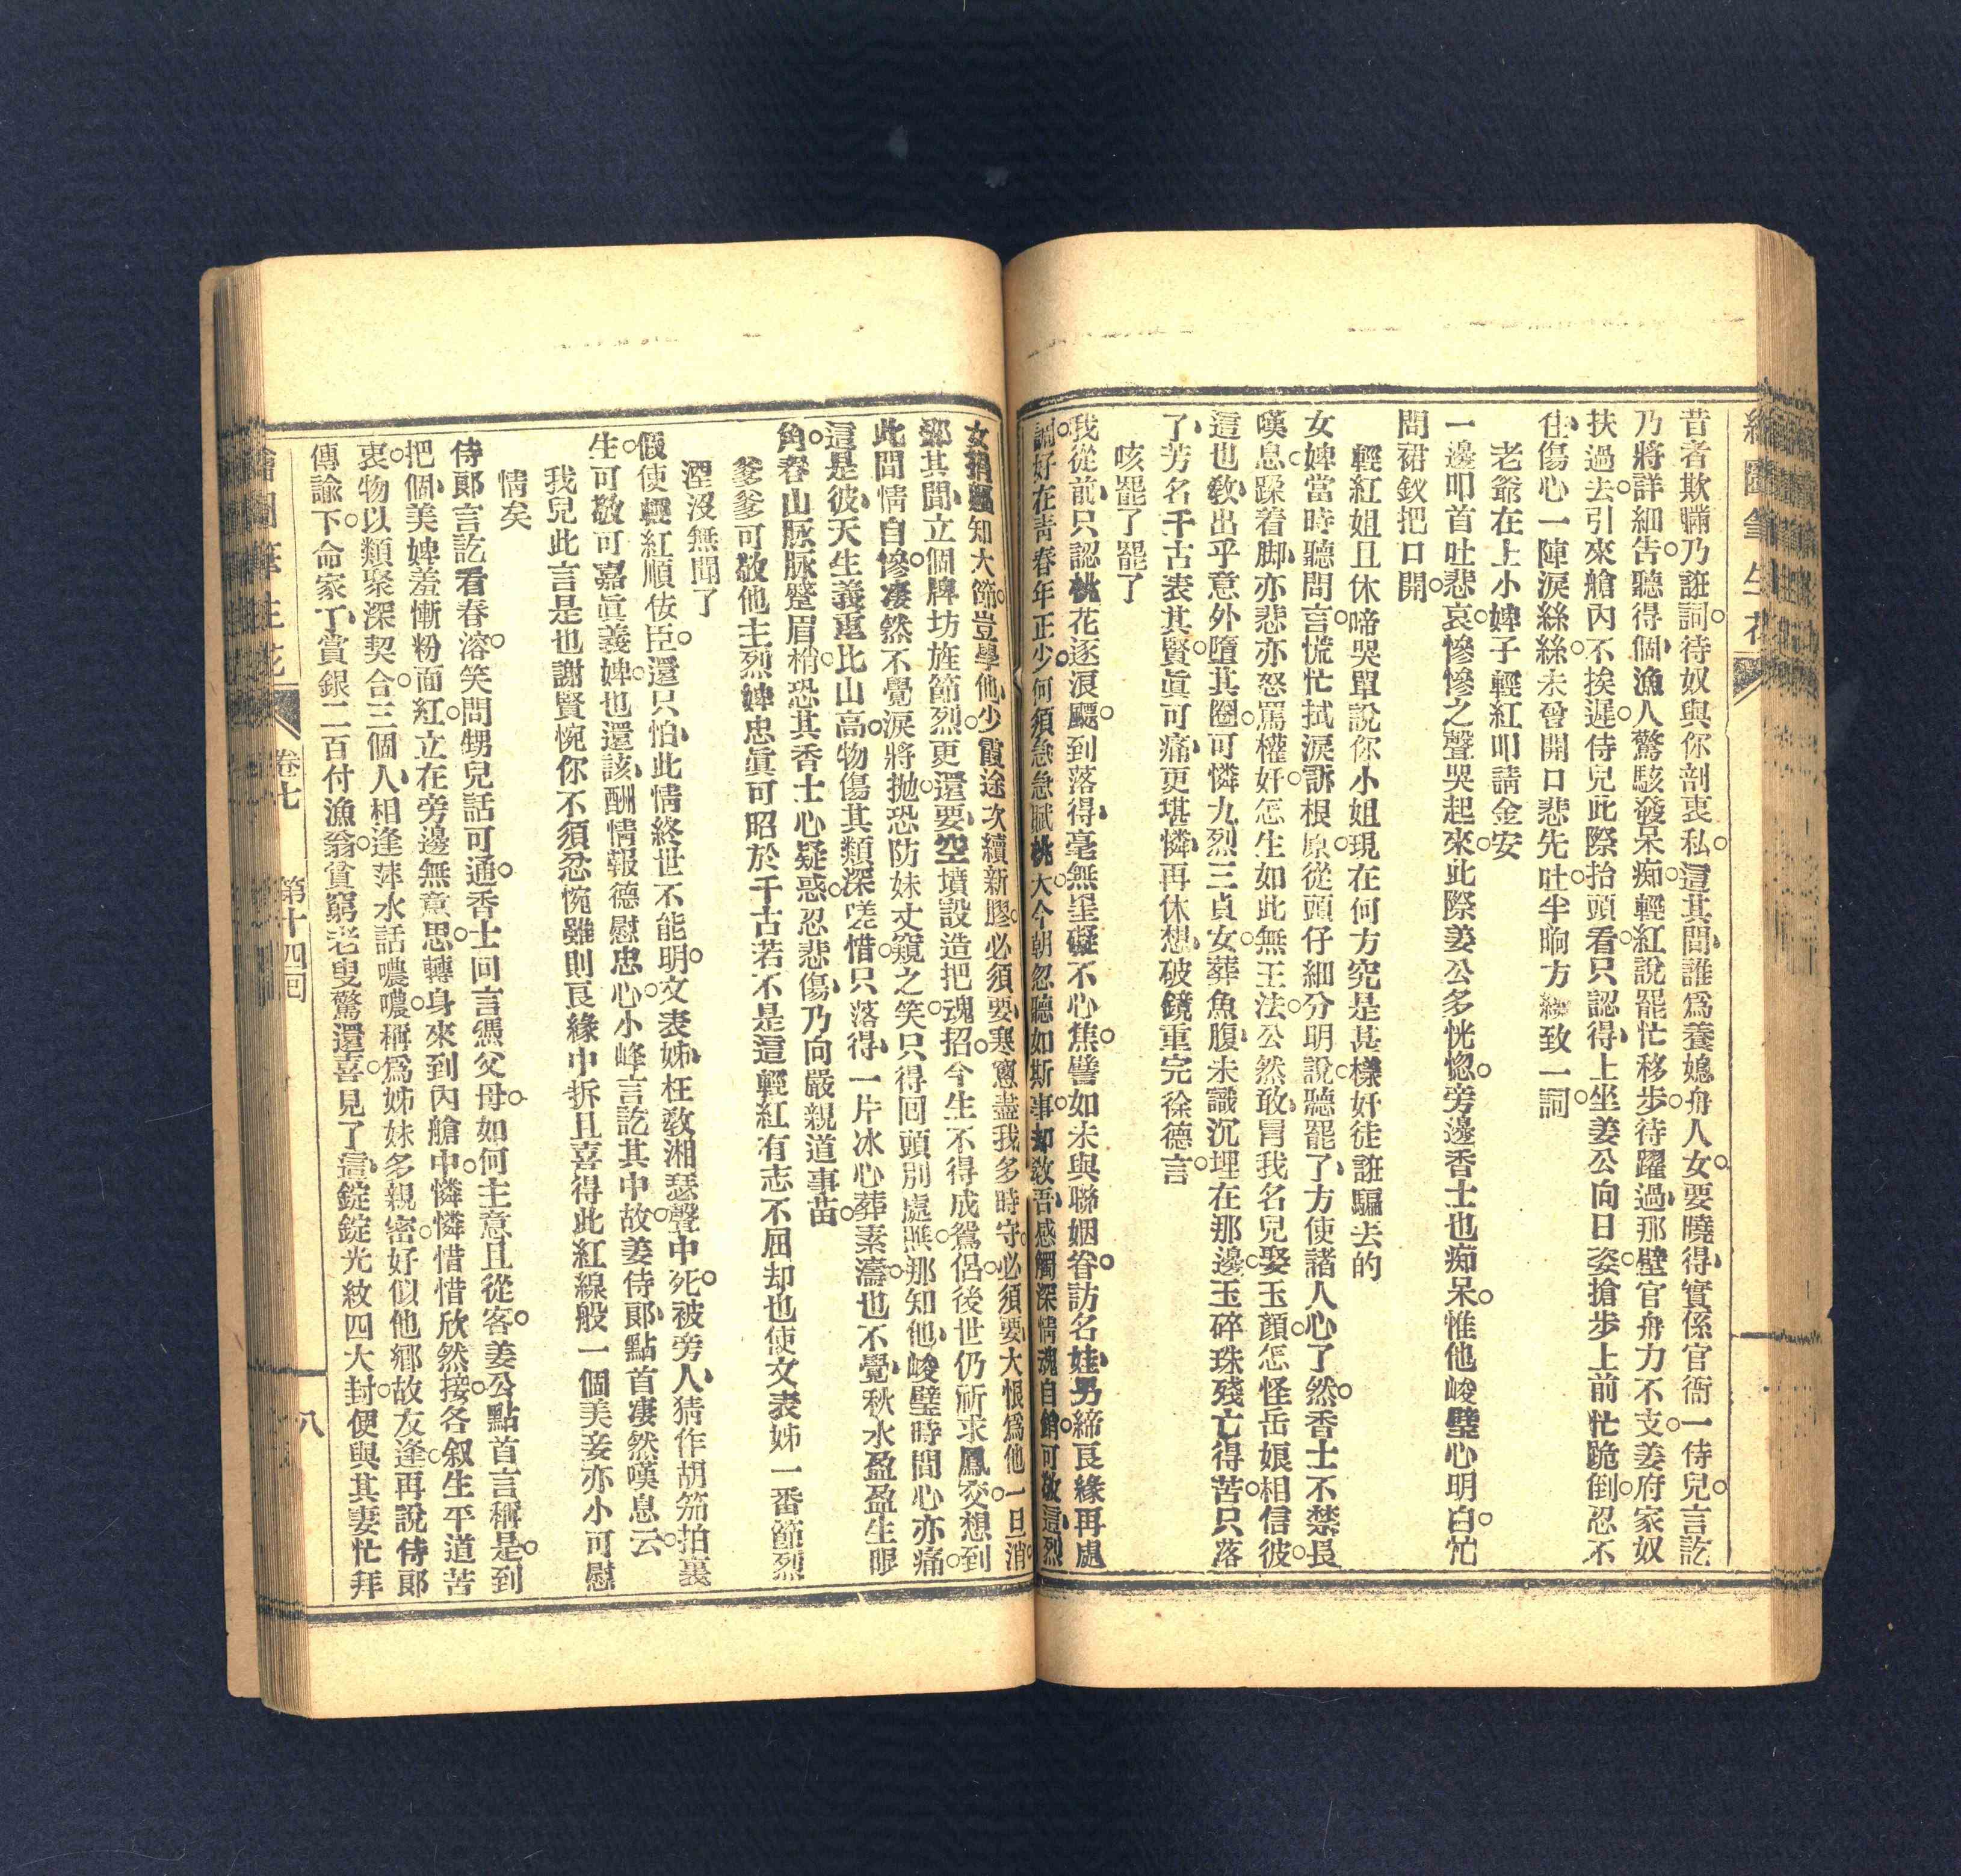 繪圖筆生花
昔者欺瞞乃誑詞。待奴與你剖衷私。這其間、誰爲養媳舟人女。要曉得、實係官衙一侍兒。言訖
乃將詳細告。聽得個、漁人驚駭發呆痴。輕紅說罷忙移步。待躍過、那壁官舟力不支。姜府家奴
扶過去。引來艙內不挨遲。侍兒此際抬頭看。只認得、上坐姜公向日姿。搶步上前忙跪倒。忍不
住、傷心一陣淚絲絲。未曾開口悲先吐。半晌方纔致一詞。
老爺在上小婢子輕紅叩請金安
一邊叩首吐悲哀。慘慘之聲哭起來。此際姜公多恍惚。旁邊香士也痴呆。惟他峻璧心明白。忙
問裙釵把口開。
輕紅姐且休啼哭單說你小姐現在何方究是甚樣奸徒誑騙去的
女婢當時聽問言。慌忙拭淚訴根原。從頭仔細分明說。聽罷了、方使諸人心了然。香士不禁長
嘆息。蹂着脚、亦悲亦怒罵權奸。怎生如此無王法。公然敢、冒我名兒娶玉顏。怎怪岳娘相信彼。
這也教、出乎意外墮其圈。可憐九烈三貞女。葬魚腹、未識沉埋在那邊。玉碎珠殘亡得苦。只落
了、芳名千古表其賢。眞可痛、更堪憐。再休想、破鏡重完徐德言。
咳罷了罷了
我從前、只認桃花逐浪飄。到落得、毫無罣礙不心焦。譬如未與聯姻眷。訪名娃、另締良緣再處
調。好在青春年正少。何須急急賦桃夭。今朝忽聽如斯事。却教吾、感觸深情魂自銷。可敬、這烈
女捐軀知大節。豈學他、少霞途次續新膠。必須要、寒窻盡我多時守。必須要、大恨爲他一旦消。
那其間、立個牌坊旌節烈。更還要、空墳設造把魂招。今生不得成鴛侶。後世仍祈求鳳交。想到
此間情自慘。凄然不覺淚將拋。恐防妹丈窺之笑。只得回頭別處瞧。那知他、峻璧時間心亦痛。
這是彼、天生義重比山高。物傷其類深嗟惜。只落得、一片冰心葬素濤。也不覺、秋水盈盈生眼
角。春山脈脈蹙眉梢。恐其香士心疑惑。忍悲傷、乃向嚴親道事苗。
爹爹可敬他主烈婢忠眞可昭於千古若不是這輕紅有志不屈却也使文表姊一番節烈
湮沒無聞了
假使輕紅順佞臣。還只怕、此情終世不能明。文表姊、枉教湘瑟聲中死。被旁人、猜作胡笳拍裏
生。可敬可嘉眞義婢。也還該、酬情報德慰忠心。小峰言訖其中故。姜侍郎、點首凄然嘆息云。
我兒此言是也謝賢惋你不須忿惋雖則良緣中拆且喜得此紅線般一個美妾亦小可慰
情矣
侍郎言訖看春溶。笑問甥兒話可通。香士回言憑父母。如何主意且從容。姜公點首言稱是。到
把個、美婢羞慚粉面紅。立在旁邊無意思。轉身來到內艙中。憐憐惜惜欣然接。各叙生平道苦
衷。物以類聚深契合。三個人、相逢萍水話噥噥。稱爲姊妹多親密。好似他鄉故友逢。再說侍郎
傳諭下。命家丁、賞銀二百付漁翁。貧窮老叟驚還喜。見了這、錠錠光紋四大封。便與其妻忙拜
繪圖筆生花
卷七
第十四回
八